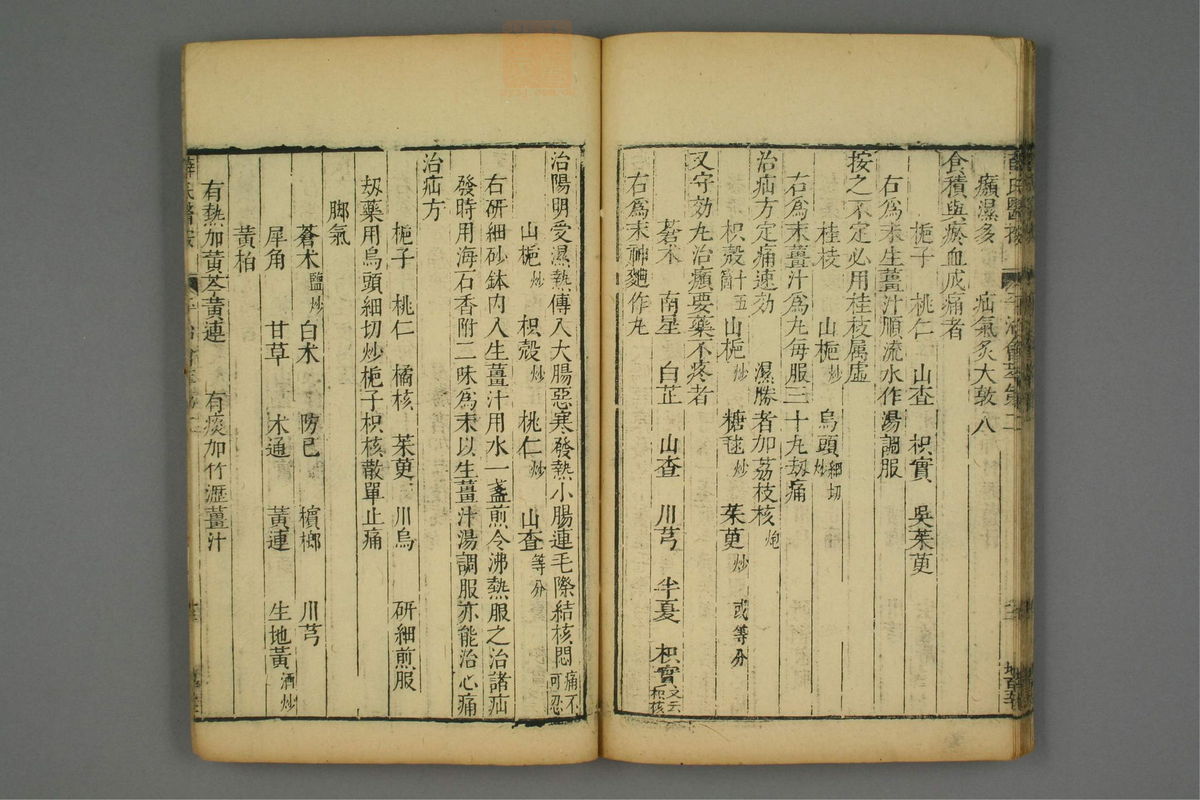 癩濕多　疝氣灸大敦八
食積與瘀血成痛者
梔子　桃仁　山查　枳實　吳茱萸
右爲末生薑汁順流水作湯調服
按之不定必用桂枝屬虛
桂枝　山梔炒　烏頭細切炒
右爲末薑汁爲丸每服三十九刼痛
治疝方定痛速效　濕勝者加荔枝核炮
枳殼十五箇　山梔炒　糖毬炒　茱萸炒　或等分
又守効丸治癩要藥不疼者
蒼术　南星　白芷　山查　川芎　半夏　枳實又云枳核
右爲末神麯作丸
治陽明受濕熱傳入大腸惡寒發熱小腸連毛際結核悶痛不可忍
山梔炒　枳殼炒　桃仁炒　山查等分
右研細砂鉢內入生薑汁用水一盞煎令沸熱服之治諸疝
發時用海石香附二味爲末以生薑汁湯調服亦能治心痛
治疝方
梔子　桃仁　橘核　茱萸　川烏　研細煎服
刼藥用烏頭細切炒梔子枳核散單止痛
脚氣
蒼术鹽炒　白术　防己　檳榔　川芎
犀角　甘草　木通　黃連　生地黃酒炒
黃柏
有熱加黃芩黃連　有痰加竹瀝薑汁
薛氏醫按